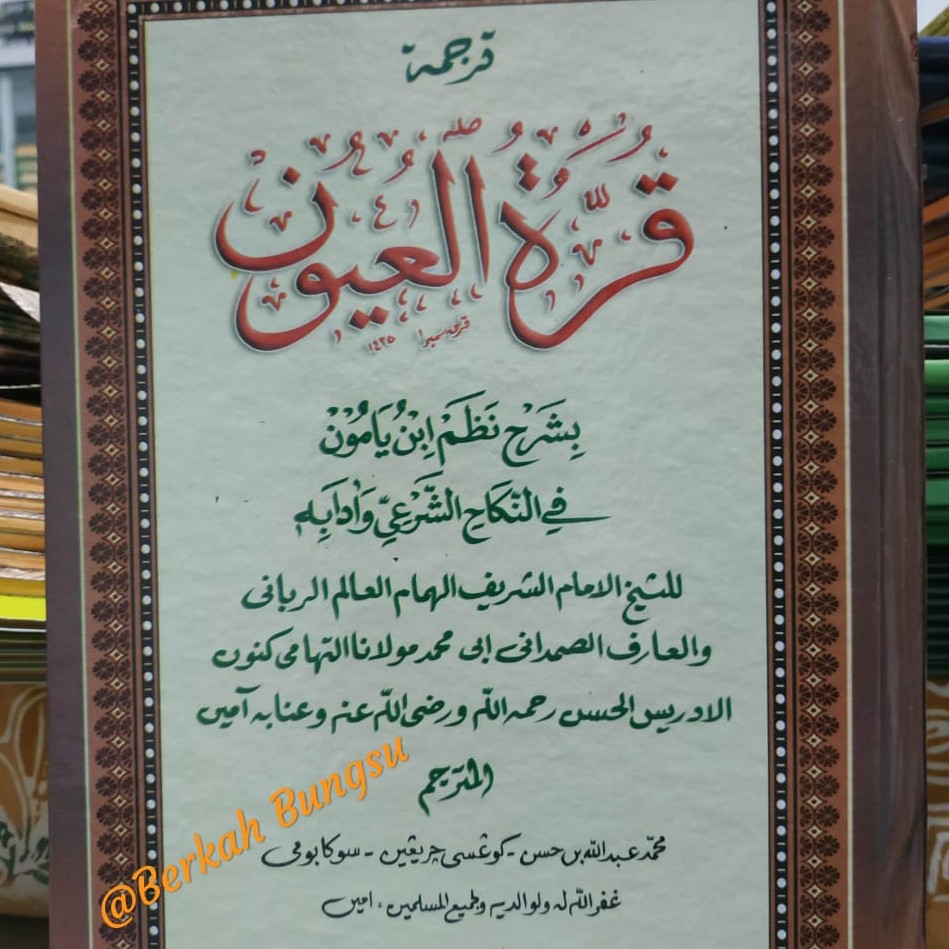 ترجمة
قُرَّةُ الْعُيُوْنِ
١٤٣٥
بِشَرْحِ نَظَمْ اِبْنُ يَامُوْنْ
فِي النِّكَاحِ الشَّرْعِيِّ وَاٰدَابِهِ
للشيخ الامام الشريف الهمام العالم الربانى
والعارف الصمدانى ابى محمد مولانا التهامى كنون
الادريس الحسن رحمه الله ورضى الله عنه وعنابه آمين
المترجم
محمّد عبد الله بن حسن - كوڠسى چريڠين - سوكابومى
غفر الله له ولوالديه ولجميع المسلمين ، امين
@Berkah Bungsu